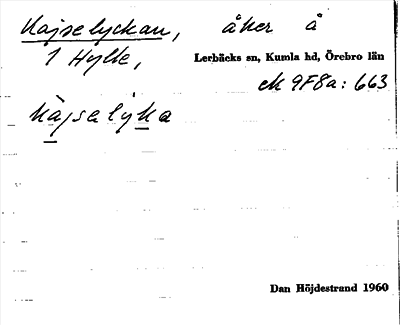 Kajselyckan, åker å
1 Hylte,
Lerbäcks sn, Kumla hd, Örebro län
ek 9F8a: 663
kàjselỳka
Dan Höjdestrand 1960